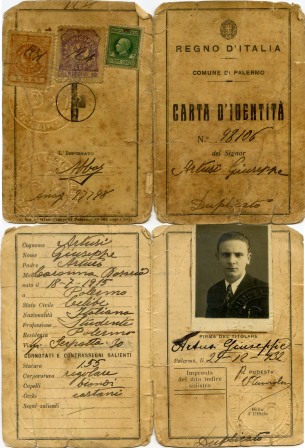 L'IMPIEGATO
REGNO D'ITALIA
COMUNE DI PALERMO
CARTA D'IDENTITÀ
N.° 98106
del Signor
Artusi Giuseppe
Duplicato
Cognome Artusi
Nome Giuseppe
Padre Arturo
Madre Caronna Rosaria
nato il 18-7-1915
a Palermo
Stato Civile Celibe
Nazionalità Italiana
Professione Studente
Residenza Palermo
Via
CONNOTATI E CONTRASSEGNI SALIENTI
Statura 1.55
Corporatura regolare
Capelli biondi
Occhi castani
Segni salienti
FIRMA DEL TITOLARE
Artusi Giuseppe
Palermo, li 29-12-932
Impronta del dito indice sinistro
P. IL PODESTÀ
Duplicato